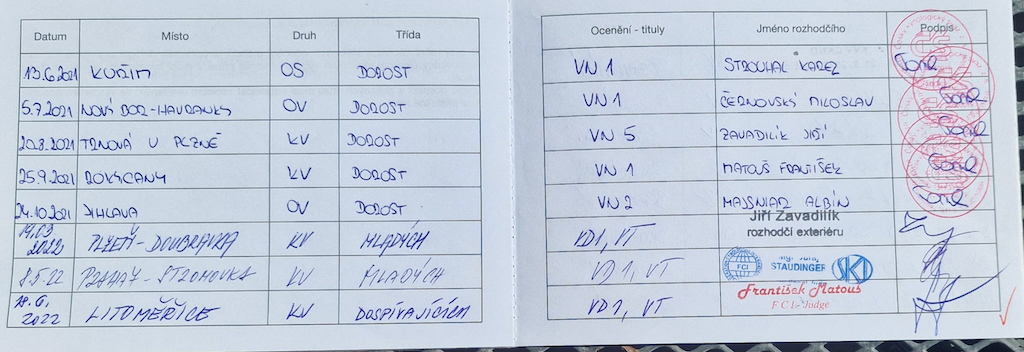 Datum Místo Druh Třída Ocenění - tituly Jméno rozhodčího Podpis
13.6.2021 KUŘIM OS DOROST VN 1 STROUHAL KAREL
5.7.2021 NOVÝ BOR-HAVRANKY OV DOROST VN 1 ČERNOVSKÝ MILOSLAV
20.8.2021 TRNOVÁ U PLZNĚ KV DOROST VN 5 ZAVADILÍK JIŘÍ
25.9.2021 ROKYCANY KV DOROST VN 1 MATOUŠ FRANTIŠEK
24.10.2021 JIHLAVA OV DOROST VN 2 MASSNIAR ALBÍN
19.03 2022 PLZEŇ-DOUBRAVKA KV MLADÝCH VD1, VT Jiří Zavadilík
rozhodčí exteriéru
8.5.22 STROMOVKA KV MLADÝCH VD 1, VT FCI STAUDINGER SKJ
18.6. 2022 LITOMĚŘICE KV DOSPÍVAJÍCÍCH VD1, VT František Matouš
F C I - Judge